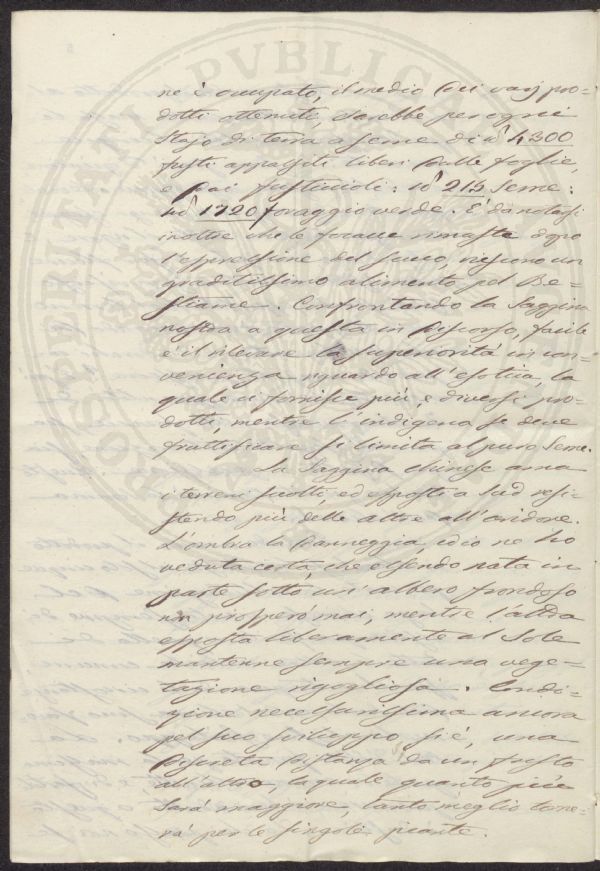 ne è occupato, il medio dei varj pro-
dotti ottenuti, sarebbe per ogni
Stajo di terra a seme di lb 4300
fusti appassiti liberi dalle foglie,
e dai fusticcioli: lb 215 Seme:
lb 1720 foraggio verde. È da notarsi
inoltre che le focacce rimaste dopo
l'espressione del succo, riescono un
graditissimo alimento pel Be-
stiame. Confrontando la Saggina
nostra a questa in discorso, facile
è il rilevare la superiorità in con-
venienza riguardo all'esotica, la
quale ci fornisce più, e diversi pro-
dotti, mentre l'indigena se deve
fruttificare si limita al puro Seme.
La Saggina chinese ama
i terreni sciolti, ed esposti a Sud resi-
stendo più delle altre all'aridore.
L'ombra la danneggia, ed io ne ho
veduta certa, che essendo nata in
parte sotto un'albero frondoso
non prosperò mai, mentre l'altra
esposta liberamente al Sole
mantenne sempre una vege-
tazione rigogliosa. Condi-
zione necessarissima ancora
pel suo sviluppo si è, una
discreta distanza da un fusto
all'altro, la quale quanto più
Sarà maggiore, tanto meglio torne-
rà per le singole piante.
PROSPERITATI PVBLICAE